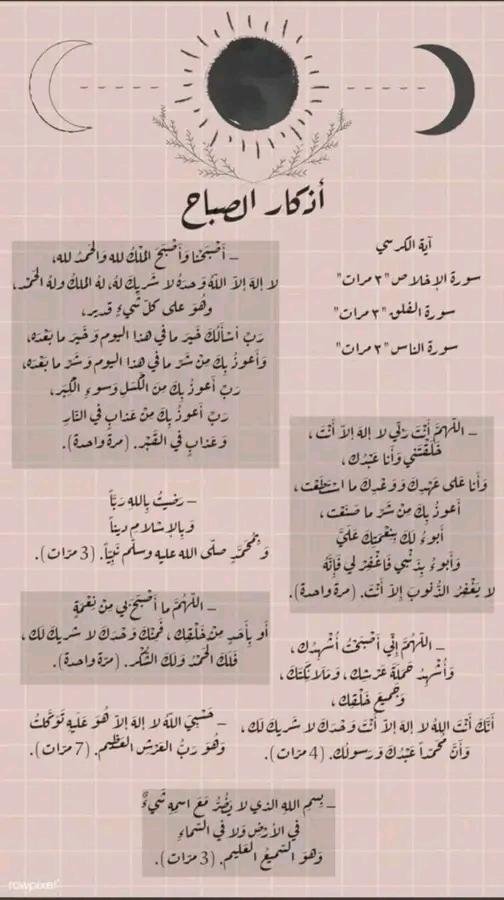 أذكار الصباح
آية الكرسي
سورة الإخلاص "٣ مرات"
سورة الفلق "٣ مرات"
سورة الناس "٣ مرات"
– أَصْبَحْنا وَأَصْبَحَ المُلْكُ لله وَالحَمدُ لله،
لا إلهَ إلاّ اللّهُ وَحدَهُ لا شَريكَ لهُ، لهُ المُلكُ ولهُ الحَمْد،
وهُوَ على كلّ شَيءٍ قدير،
رَبِّ أسْألُكَ خَيرَ ما في هذا اليوم وَخَيرَ ما بَعْدَه،
وَأَعوذُ بِكَ مِنْ شَرِّ ما في هذا اليوم وَشَرِّ ما بَعْدَه،
رَبِّ أَعوذُبِكَ مِنَ الْكَسَلِ وَسوءِ الْكِبَر،
رَبِّ أَعوذُبِكَ مِنْ عَذابٍ في النّارِ
وَعَذابٍ في القَبْر. (مرة واحدة).
– اللّهمَّ أَنْتَ رَبِّي لا إلهَ إلاّ أَنْتَ ،
خَلَقْتَني وَأَنا عَبْدُك ،
وَأَنا على عَهْدِكَ وَوَعْدِكَ ما اسْتَطَعْت ،
أَعوذُ بِكَ مِنْ شَرِّ ما صَنَعْت ،
أَبوءُ لَكَ بِنِعْمَتِكَ عَلَيَّ
وَأَبوءُ بِذَنْبي فَاغْفِرْ لي فَإِنَّهُ
لا يَغْفِرُ الذُّنوبَ إِلاّ أَنْتَ. (مرة واحدة).
– رضيتُ بِاللهِ رَبَّاً
وَبِالإسْلامِ ديناً
وَ بِمُحَمَّدٍ صلّى الله عليه وسلّم نَبِيّاً. (3 مرّات ).
– اللّهُمَّ ما أَصْبَحَ بي مِنْ نِعْمَةٍ
أَو بِأَحَدٍ مِنْ خَلْقِك ، فَمِنْكَ وَحْدَكَ لا شريكَ لك ،
فَلَكَ الْحَمْدُ وَلَكَ الشُّكْر. (مرّة واحدة).
– اللّهُمَّ إِنِّي أَصْبَحْتُ أُشْهِدُك ،
وَأُشْهِدُ حَمَلَةَ عَرْشِك ، وَمَلائِكَتَك ،
وَجَميعَ خَلْقِك ،
أَنَّكَ أَنْتَ اللهُ لا إلهَ إلاّ أَنْتَ وَحْدَكَ لا شَريكَ لَك ،
وَأَنَّ مُحَمّداً عَبْدُكَ وَرَسولُك. (4 مرّات ).
– حَسْبِيَ اللّهُ لا إلهَ إلاّ هُوَ عَلَيهِ تَوَكَّلتُ
وَهُوَ رَبُّ العَرْشِ العَظيم. (7 مرّات ).
– بِسمِ اللهِ الذي لا يَضُرُّ مَعَ اسمِهِ شَيءٌ
في الأرْضِ وَلا في السّماءِ
وَهوَ السّميعُ العَليم. (3 مرّات ).
rawpixel